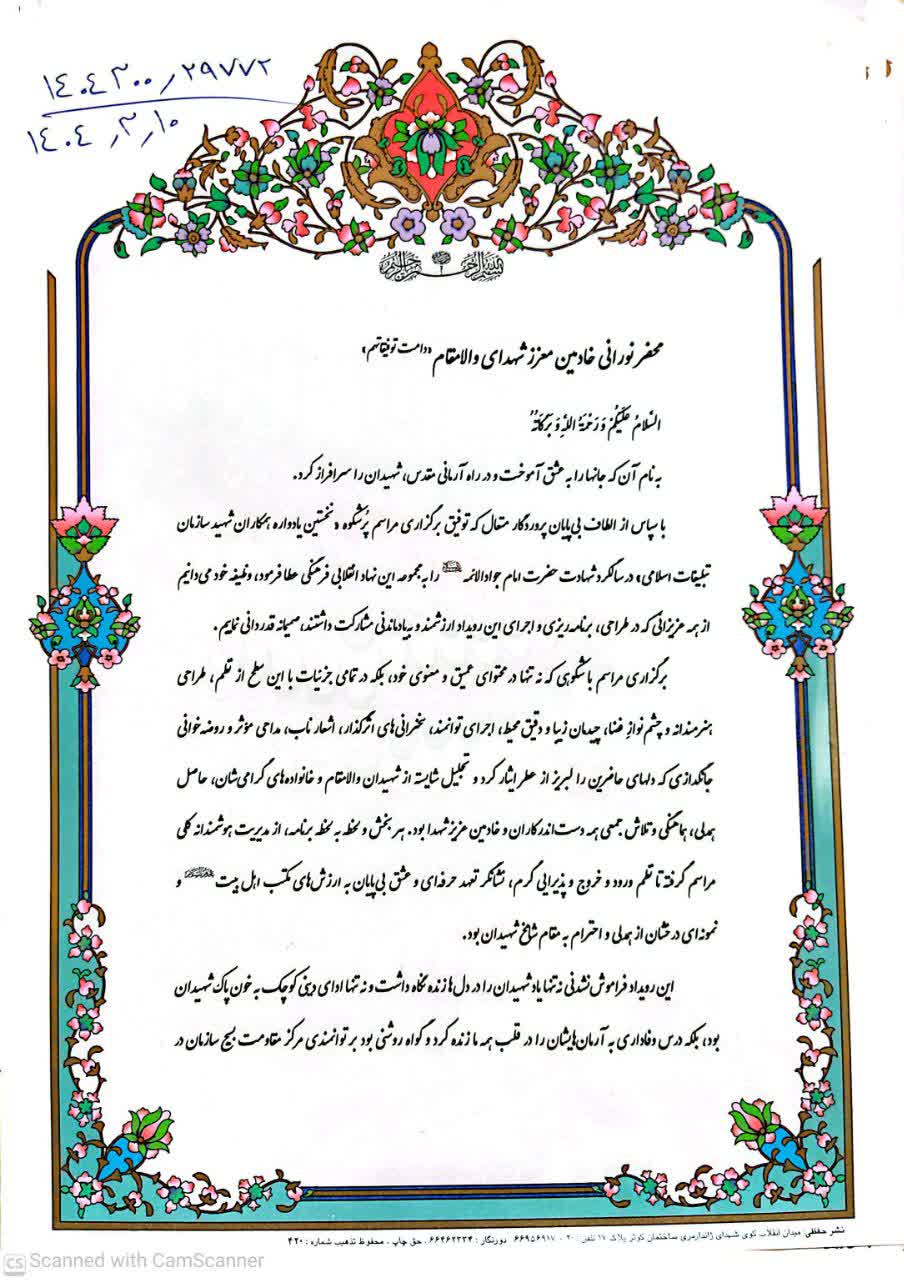 ۱۴۰۴۳۰۰٫۲۹۷۷۲
۱۴۰۴٫۳٫۱۰
بسم الله الرحمن الرحیم
محضر نورانی خادمین معزز شهدای والامقام «دامت توفیقاتهم»
السَّلامُ عَلَیکُم وَ رَحمَةُ اللهِ وَ بَرَکاتُه
به نام آن که جانها را به عشق آموخت و در راه آرمانی مقدس، شهیدان را سرافراز کرد.
با سپاس از الطاف بی‌پایان پروردگار متعال که توفیق برگزاری مراسم پُرشکوه «نخستین یادواره همکاران شهید سازمان
تبلیغات اسلامی» در سالگرد شهادت حضرت امام جوادالائمه را به مجموعه این نهاد انقلابی فرهنگی عطا فرمود، وظیفه خود می‌دانیم
از همه عزیزانی که در طراحی، برنامه‌ریزی و اجرای این رویداد ارزشمند و به‌یادماندنی مشارکت داشتند، صمیمانه قدردانی نماییم.
برگزاری مراسم باشکوهی که نه تنها در محتوای عمیق و معنوی خود، بلکه در تمامی جزئیات با این سطح از نظم، طراحی
هنرمندانه و چشم نوازِ فضا، چیدمان زیبا و دقیق محیط، اجرای توانمند، سخنرانی‌های اثرگذار، اشعار ناب، مداحی مؤثر و روضه‌خوانی
جانگدازی که دلهای حاضرین را لبریز از عطر ایثار کرد و تجلیل شایسته از شهیدان والامقام و خانواده‌های گرامی‌شان، حاصل
همدلی، هماهنگی و تلاش جمعی همه دست‌اندرکاران و خادمین عزیز شهدا بود. هر بخش و لحظه به لحظه برنامه، از مدیریت هوشمندانه کلی
مراسم گرفته تا نظم ورود و خروج و پذیرایی گرم، نشانگر تعهد حرفه‌ای و عشق بی‌پایان به ارزش‌های مکتب اهل بیت و
نمونه‌ای درخشان از همدلی و احترام به مقام شامخ شهیدان بود.
این رویداد فراموش نشدنی نه تنها یاد شهیدان را در دل‌ها زنده نگاه داشت و نه تنها ادای دینی کوچک به خون پاک شهیدان
بود، بلکه درس وفاداری به آرمان‌هایشان را در قلب همه ما زنده کرد و گواه روشنی بود بر توانمندی مرکز مقاومت بسیج سازمان در
نشر حفظی: میدان انقلاب کوی شهدای ژاندارمری ساختمان کوثر پلاک ۱۷ تلفن: ۲۰ - ۶۶۹۵۶۹۱۷ دورنگار: ۶۶۴۶۲۳۳۴ ، حق چاپ ، محفوظ تذهیب شماره: ۴۲۰
CS Scanned with CamScanner